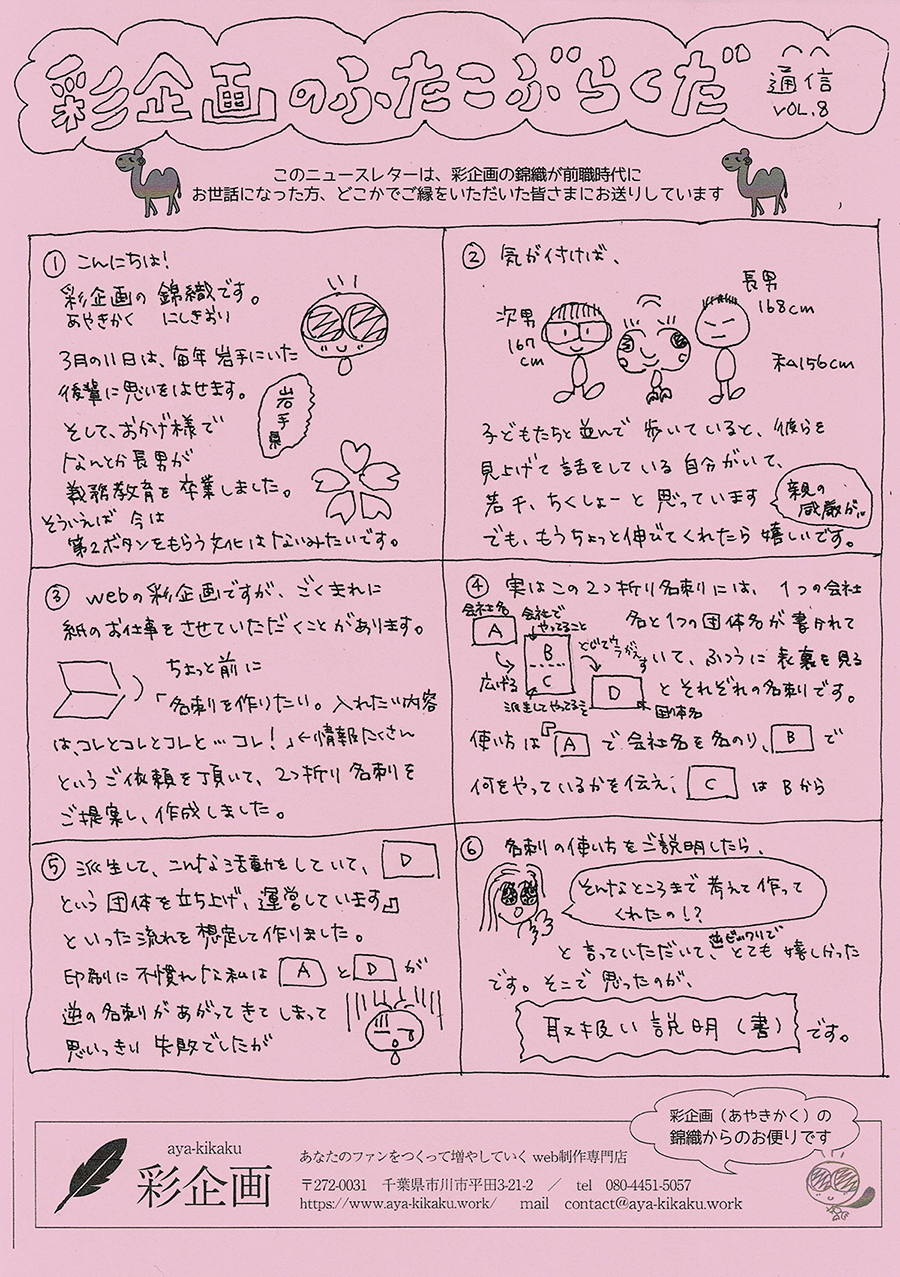 彩企画のふたこぶらくだ
通信
VOL.8
このニュースレターは、彩企画の錦織が前職時代に
お世話になった方、どこかでご縁をいただいた皆さまにお送りしています
① こんにちは!
彩企画の 錦織です。
あやきかく にしきおり
3月の11日は、毎年 岩手にいた
後輩に思いをはせます。
岩手県
そして、おかげ様で
なんとか長男が
義務教育を卒業しました。
そういえば 今は
第2ボタンをもらう文化はないみたいです。
② 気が付けば、
次男
167
cm
長男
168cm
私156cm
子どもたちと並んで 歩いていると、彼らを
見上げて 話をしている 自分がいて、
若干、ちくしょーと思っています
親の
威厳が…
でも、もうちょっと伸びてくれたら 嬉しいです。
③ webの彩企画ですが、ごくまれに
紙のお仕事をさせていただくことがあります。
ちょっと前に
「名刺を作りたい。入れたい内容
は、コレとコレとコレと…コレ!」←情報たくさん
というご依頼を頂いて、2つ折り名刺を
ご提案し、作成しました。
④ 実はこの2つ折り名刺には、1つの会社
名と1つの団体名が書かれて
いて、ふつうに表裏を見る
とそれぞれの名刺です。
会社名
A
広げる
会社で
やってること
B
C
派生してやってること
とじてウラがえす
D
団体名
使い方は『Aで会社名を名のり、Bで
何をやっているかを伝え、CはBから
⑤ 派生して、こんな活動をしていて、D
という団体を立ち上げ、運営しています』
といった流れを想定して作りました。
印刷に不慣れな私はAとDが
逆の名刺があがってきてしまって
思いっきり 失敗でしたが
⑥ 名刺の使い方をご説明したら、
そんなところまで考えて作って
くれたの!?
と言っていただいて、逆ビックリでとても嬉しかった
です。そこで思ったのが、
取扱い説明(書)です。
彩企画(あやきかく)の
錦織からのお便りです
aya-kikaku
彩企画
あなたのファンをつくって増やしていく web制作専門店
〒272-0031 千葉県市川市平田3-21-2 / tel 080-4451-5057
https://www.aya-kikaku.work/ mail contact@aya-kikaku.work